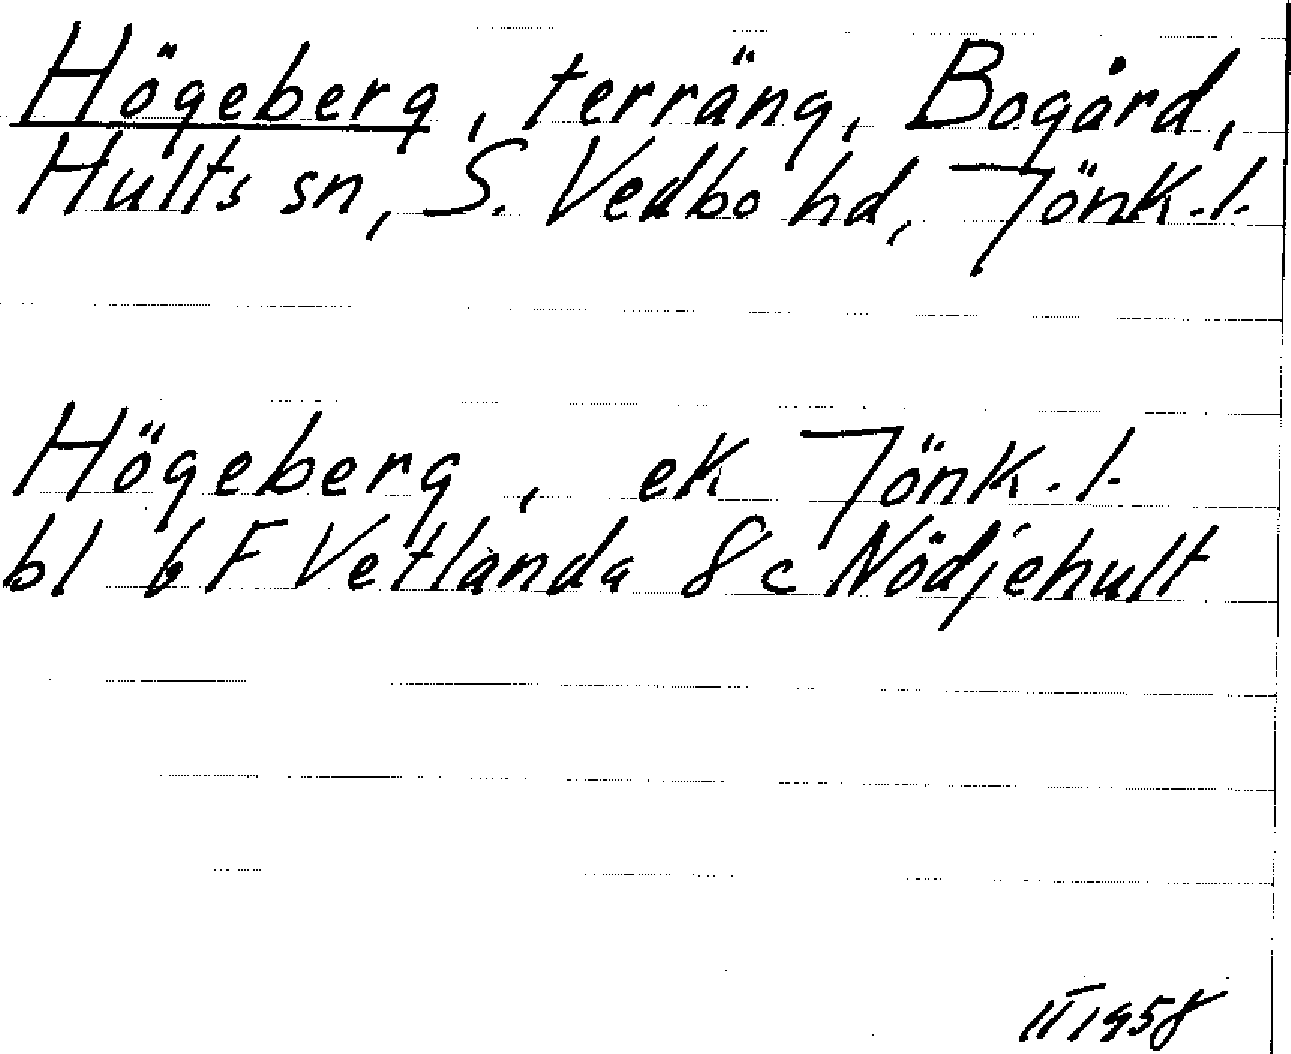 Högeberg, terräng, Bogård,
Hults sn, S. Vedbo hd, Jönk.l.
Högeberg, ek Jönk.l.
bl 6 F Vetlanda 8c Nödjehult
II 1958